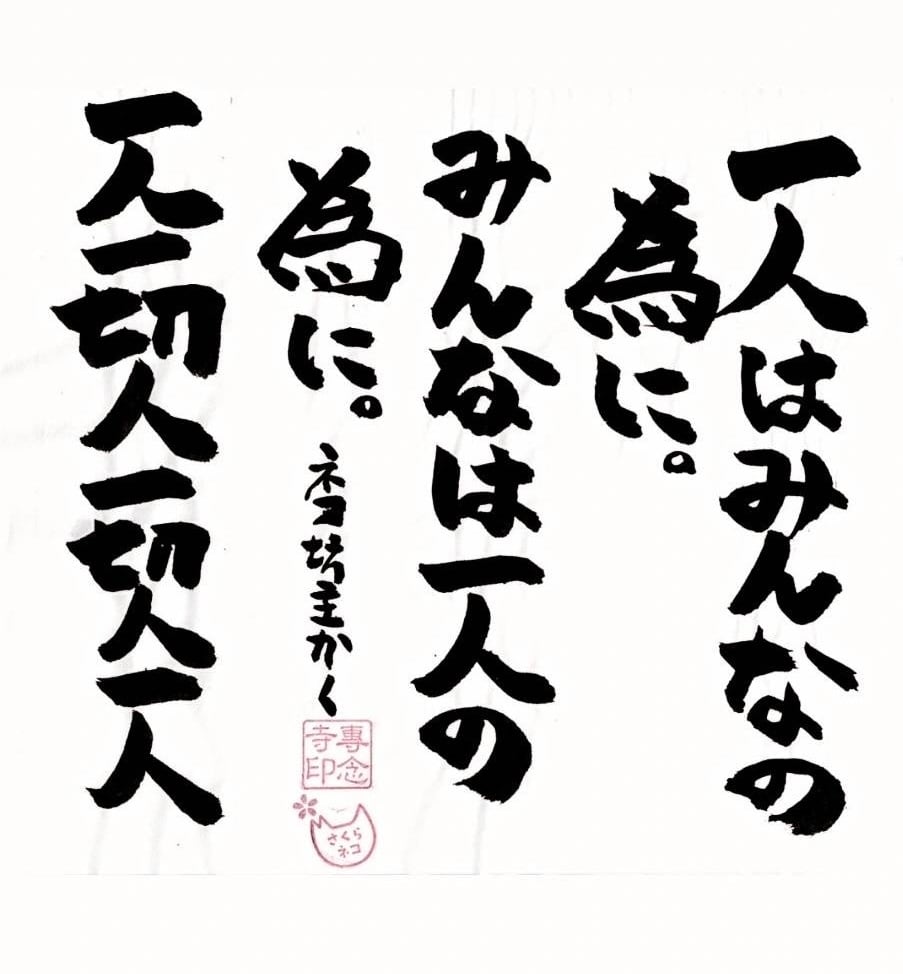 一人はみんなの
為に。
みんなは一人の
為に。
ネコ坊主かく
專念
寺印
さくら
ネコ
一人一切人一切人一人